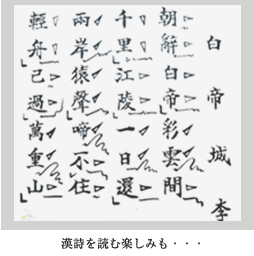 白帝城 李
朝辭白帝彩雲間
千里江陵一日還
兩岸猿聲啼不住
輕舟已過萬重山
漢詩を読む楽しみも・・・